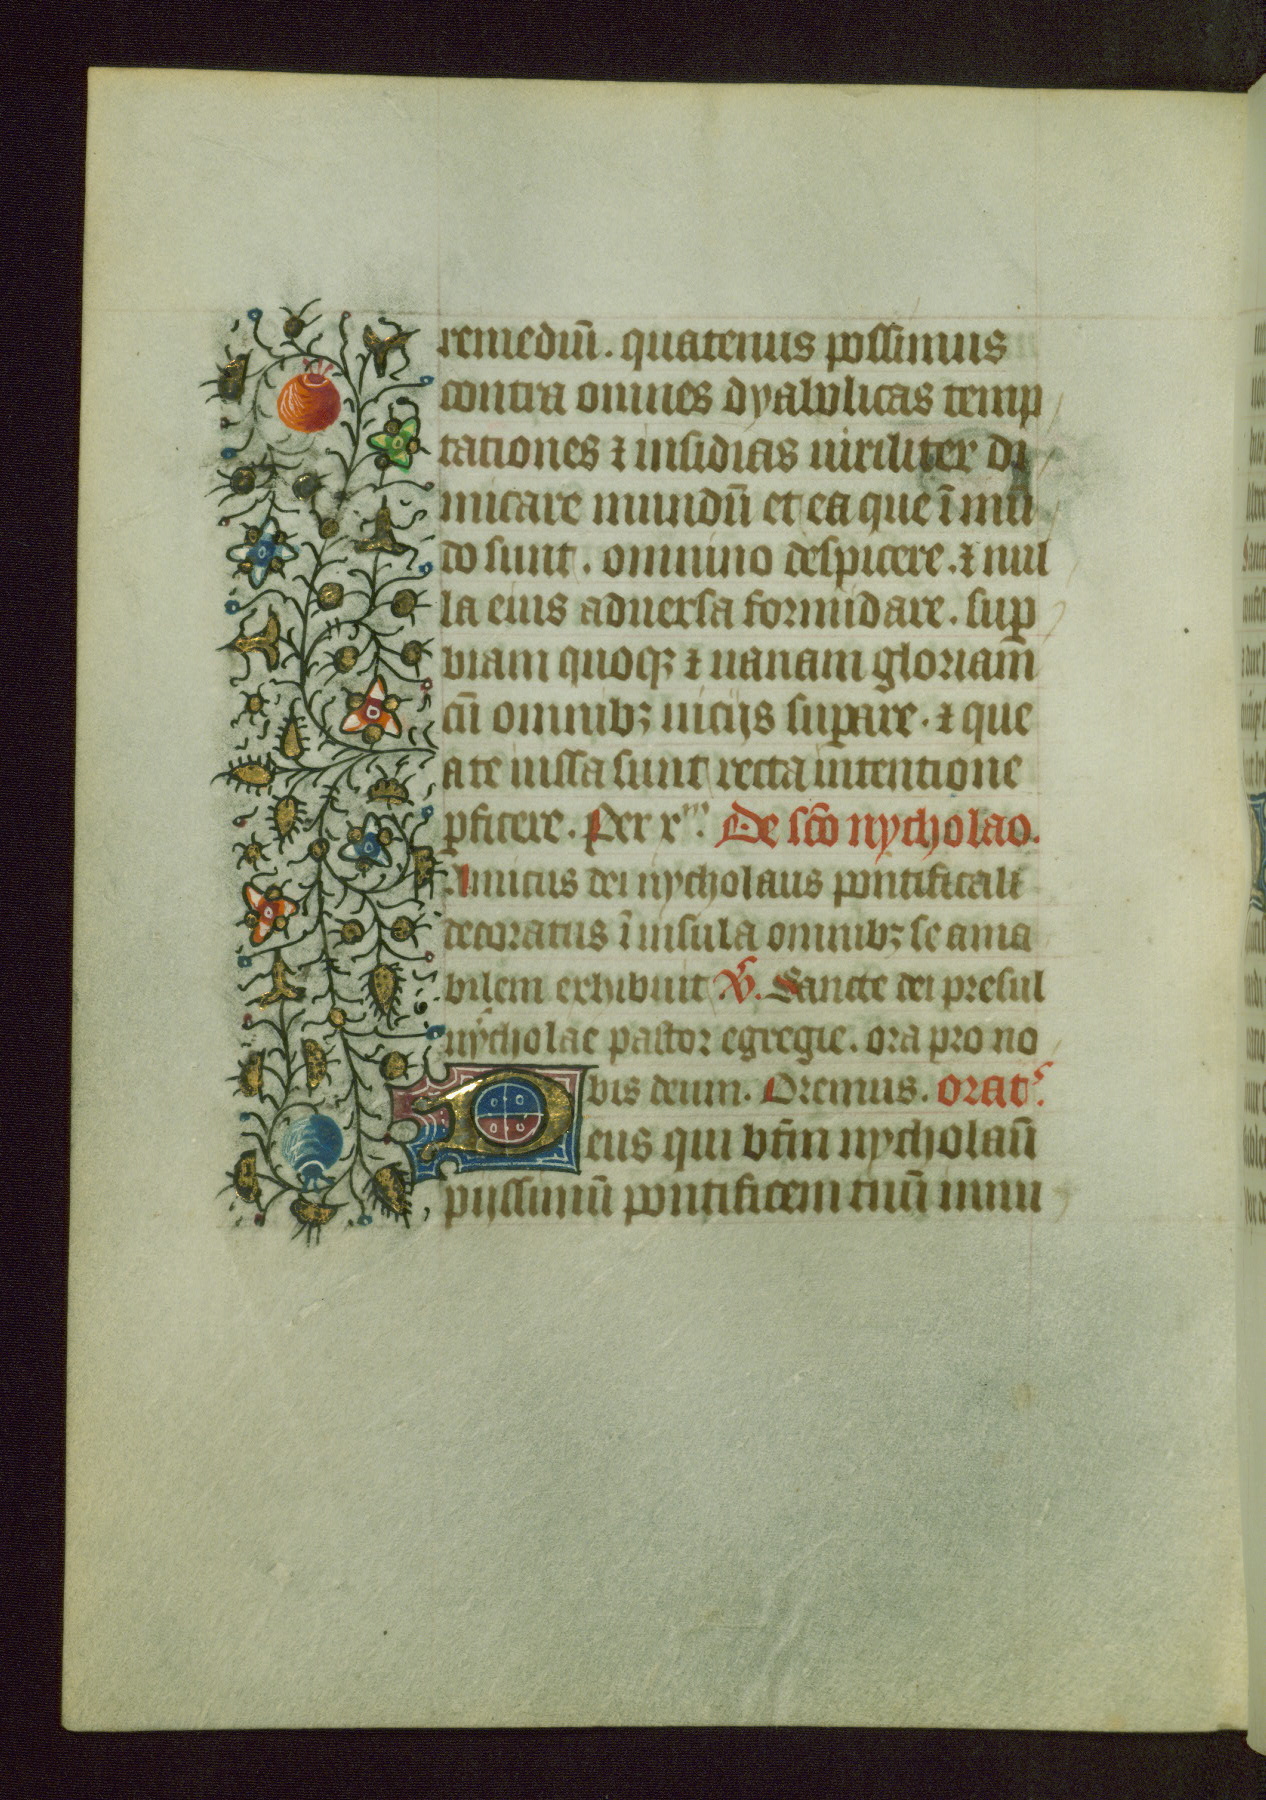 remediū. quatenus possimus
contra omnes dyabolicas temp
tationes ⁊ insidias uiriliter di
micare mundū et ea que ī mū
do sunt. omnino despicere. ⁊ nul
la eius aduersa formidare. sup
biam quoqꝫ ⁊ uanam gloriam
cū omnibꝫ uicijs suꝑare. ⁊ que
a te iussa sunt recta intentione
ꝑficere. Per x^m. De sc̄o nycholao.
Amicus dei nycholaus pontificali
decoratus ī insula omnibꝫ se ama
bilem exhibuit ℣. Sancte dei presul
nycholae pastor egregie. ora pro no
bis deum. Oremus. orat͛.
Deus qui btm̄ nycholaū
pijssimū pontificem tuū innu